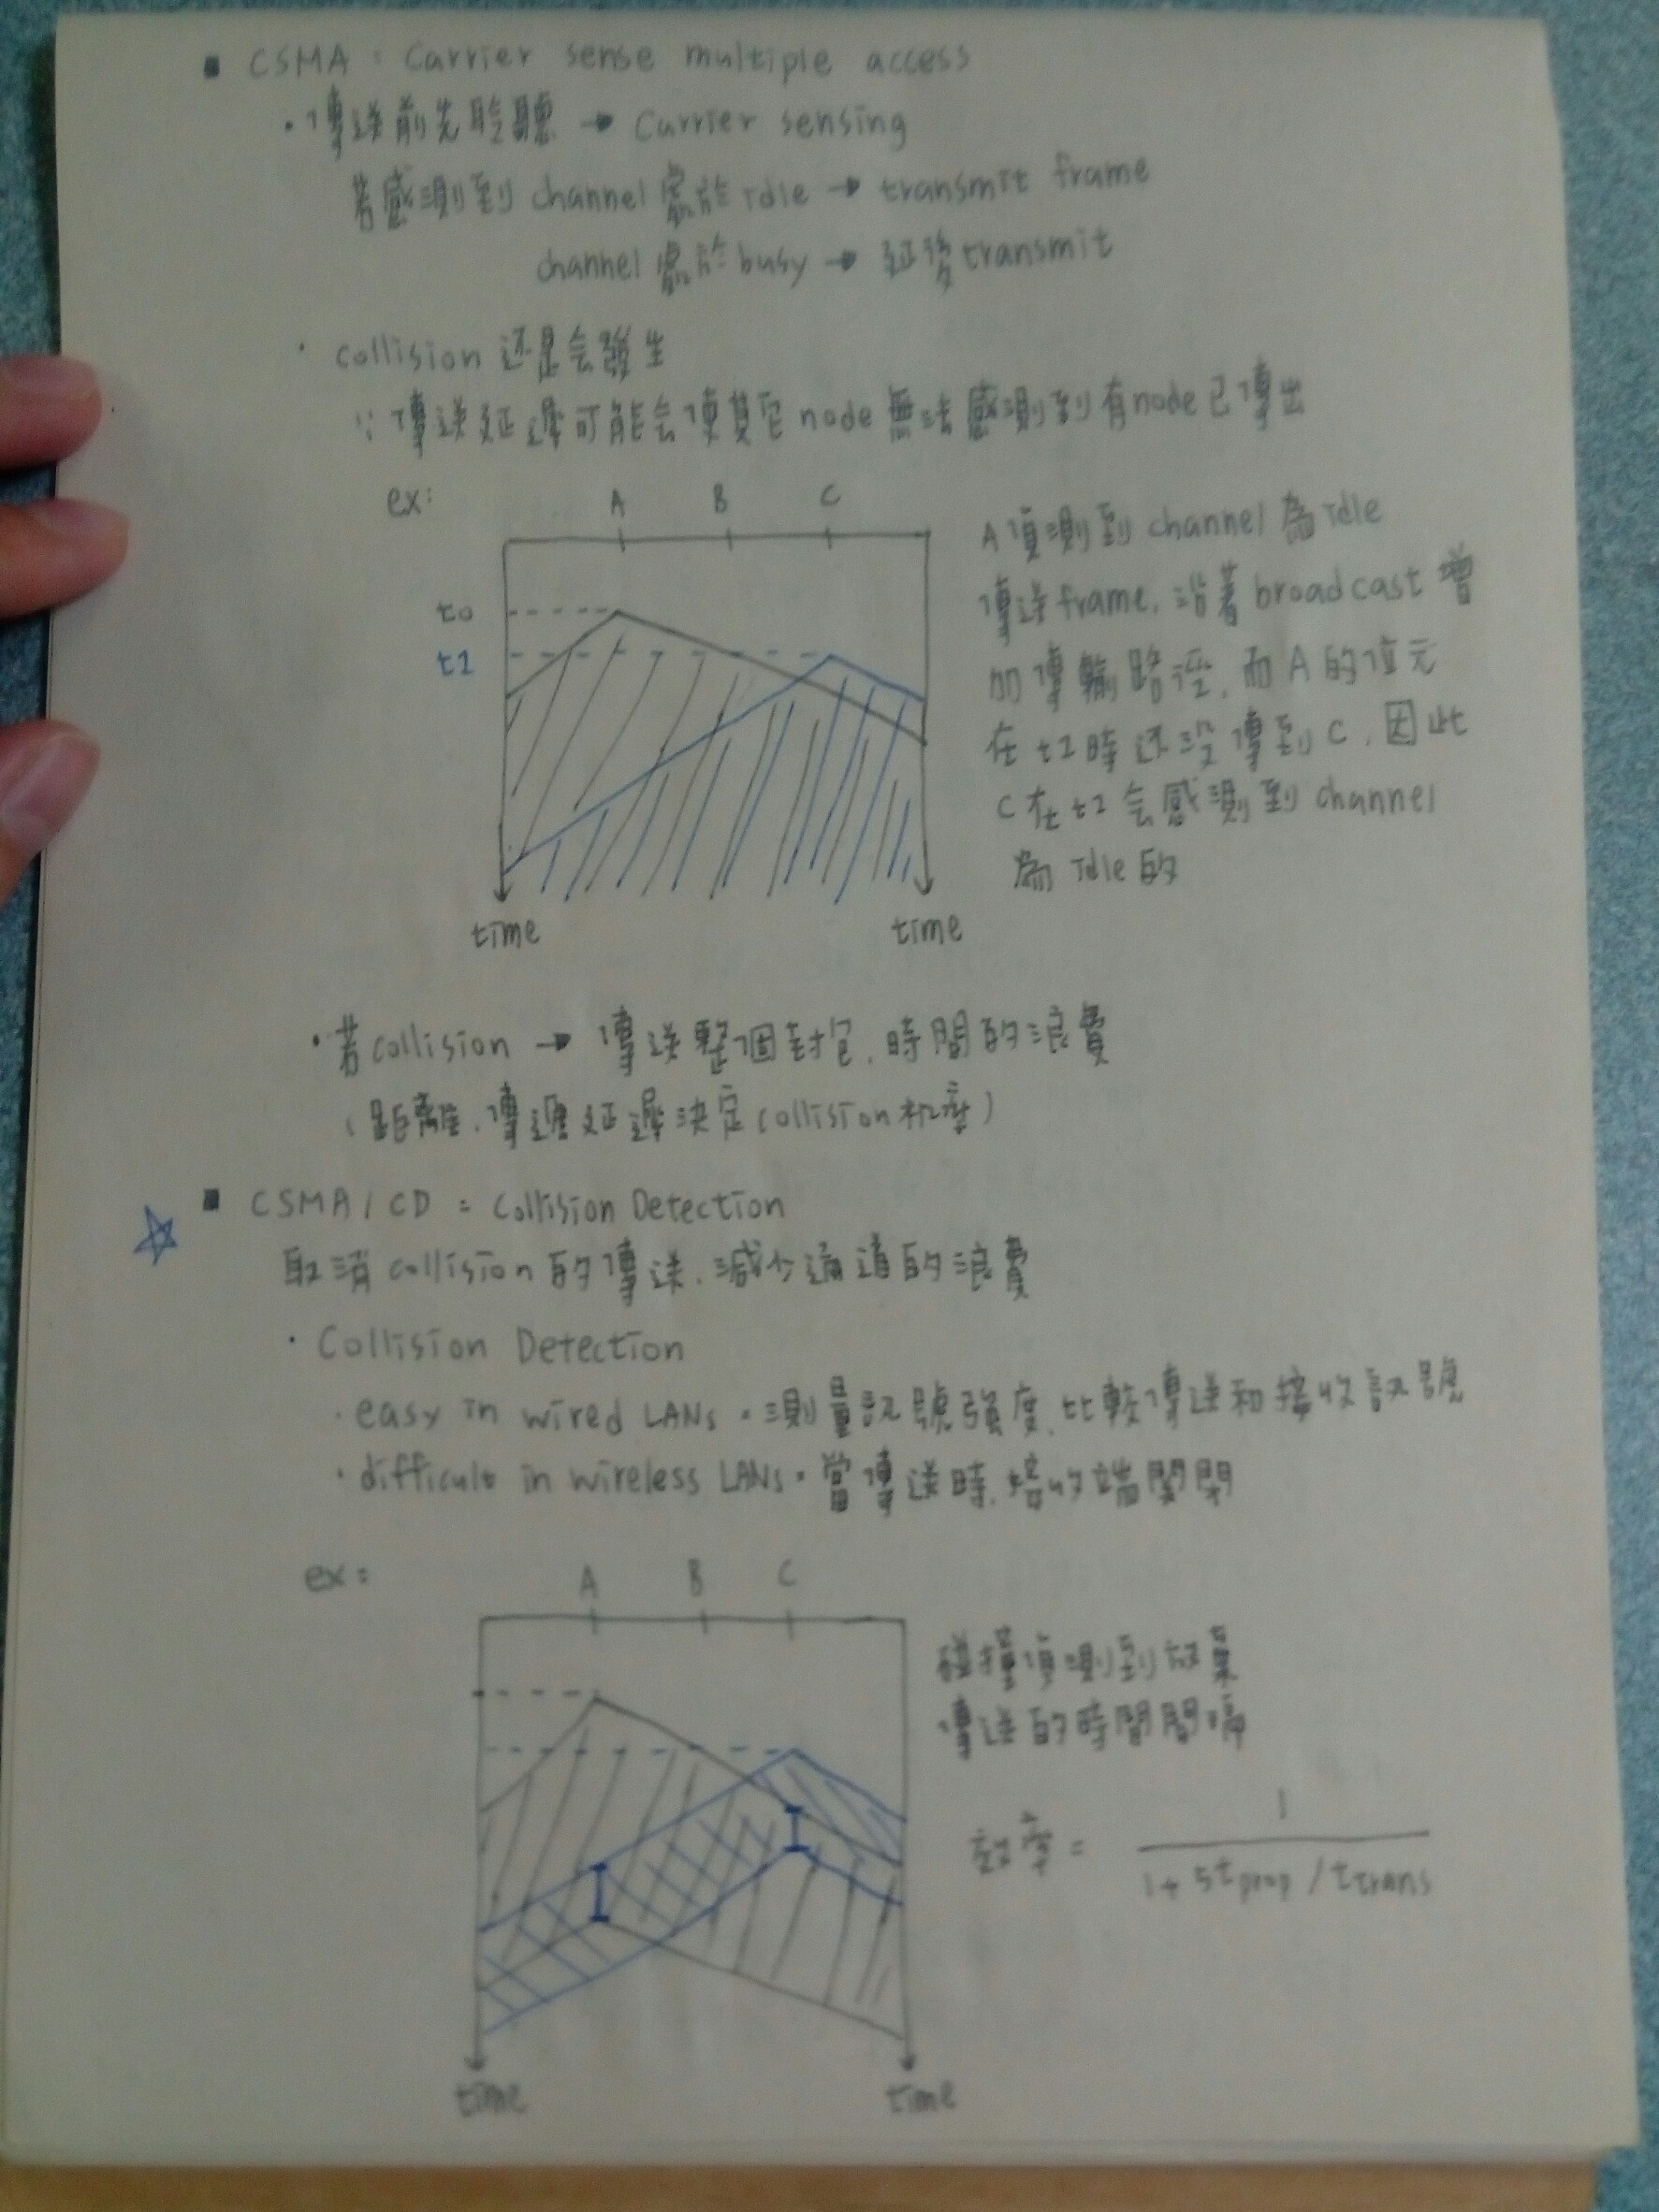 ▪ CSMA : Carrier sense multiple access
・傳送前先聆聽 → Carrier sensing
若感測到 channel 處於 idle → transmit frame
channel 處於 busy → 延後 transmit
・collision 还是会發生
∵ 傳送延遲可能会使其它 node 無法感測到有 node 已傳出
ex:
A B C
t0
t1
time time
A 偵測到 channel 為 idle
傳送 frame, 沿著 broadcast 增
加傳輸路徑, 而 A 的位元
在 t1 時还沒傳到 C, 因此
C 在 t1 会感測到 channel
為 idle 的
・若 collision → 傳送整個封包, 時間的浪費
(距離, 傳遞延遲決定 collision 机率)
▪ CSMA / CD : Collision Detection
取消 collision 的傳送, 減少通道的浪費
・Collision Detection
・easy in wired LANs : 測量訊號強度, 比較傳送和接收訊號
・difficult in wireless LANs : 當傳送時, 接收端關閉
ex :
A B C
time time
碰撞偵測到放棄
傳送的時間間隔
效率 = 1 / (1 + 5tprop / ttrans)